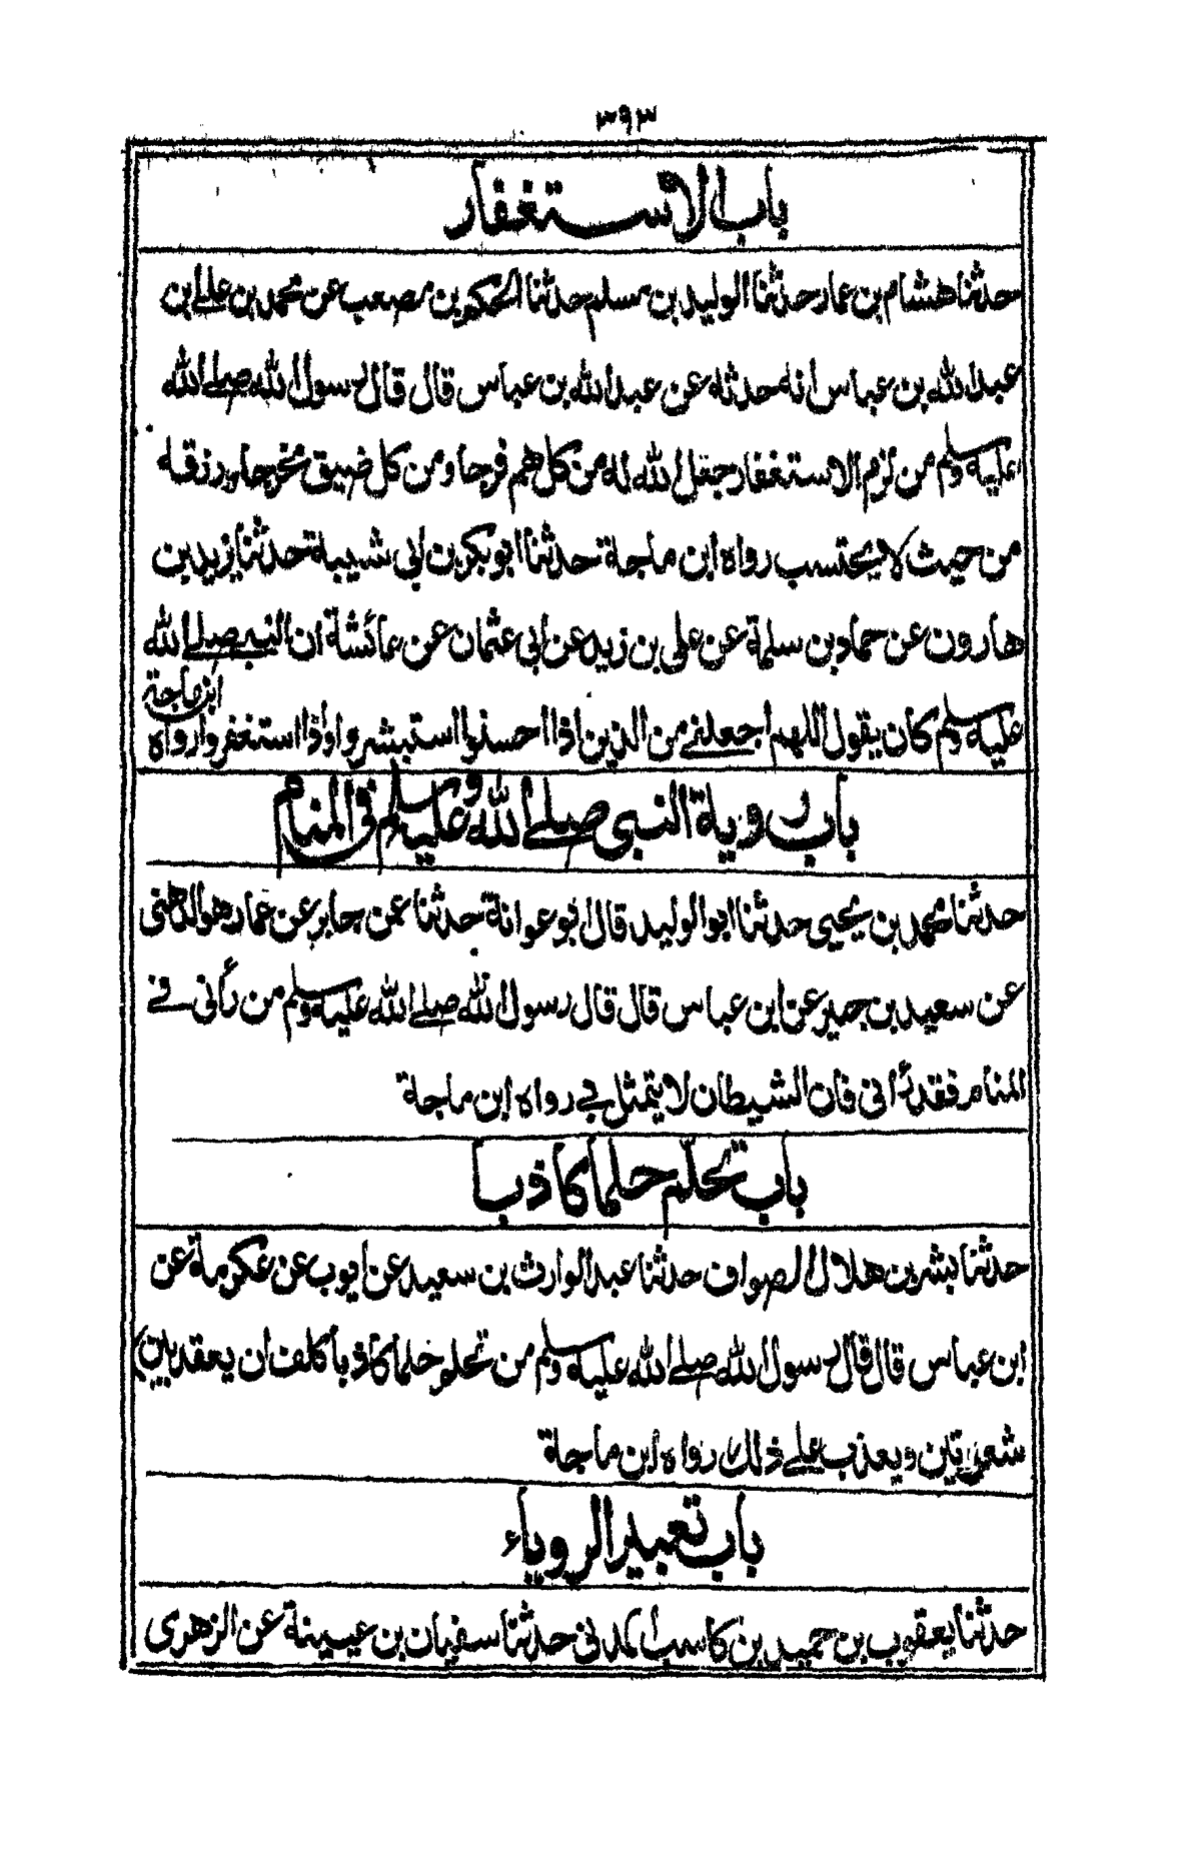 ٣٩٣
باب الاستغفار
حدثنا هشام بن عمار حدثنا الوليد بن مسلم حدثنا الحكم بن مصعب عن محمد بن علي بن
عبد الله بن عباس انه حدثه عن عبد الله بن عباس قال قال رسول الله صلے الله
عليه وسلم من لزم الاستغفار جعل الله له من كل هم فرجا ومن كل ضيق مخرجا ورزقه
من حيث لا يحتسب رواه ابن ماجة حدثنا ابو بكر بن ابي شيبة حدثنا يزيد بن
هارون عن حماد بن سلمة عن علي بن زيد عن ابي عثمان عن عائشة ان النبي صلے الله
عليه وسلم كان يقول اللهم اجعلني من الذين اذا احسنوا استبشروا واذا استغفروا رواه ابن ماجة
باب روية النبي صلے الله عليه وسلم في المنام
حدثنا محمد بن يحيى حدثنا ابو الوليد قال ابو عوانة حدثنا عن جابر عن عمار هو الدهني
عن سعيد بن جبير عن ابن عباس قال قال رسول الله صلے الله عليه وسلم من رأني في
المنام فقد رأني فان الشيطان لا يتمثل بي رواه ابن ماجة
باب تحلم حلما كاذبا
حدثنا بشر بن هلال الصواف حدثنا عبد الوارث بن سعيد عن ايوب عن عكرمة عن
ابن عباس قال قال رسول الله صلے الله عليه وسلم من تحلم حلما كاذبا كلف ان يعقد بين
شعرتين ويعذب علے ذلك رواه ابن ماجة
باب تعبير الروياء
حدثنا يعقوب بن حميد بن كاسب المدني حدثنا سفيان بن عيينة عن الزهري